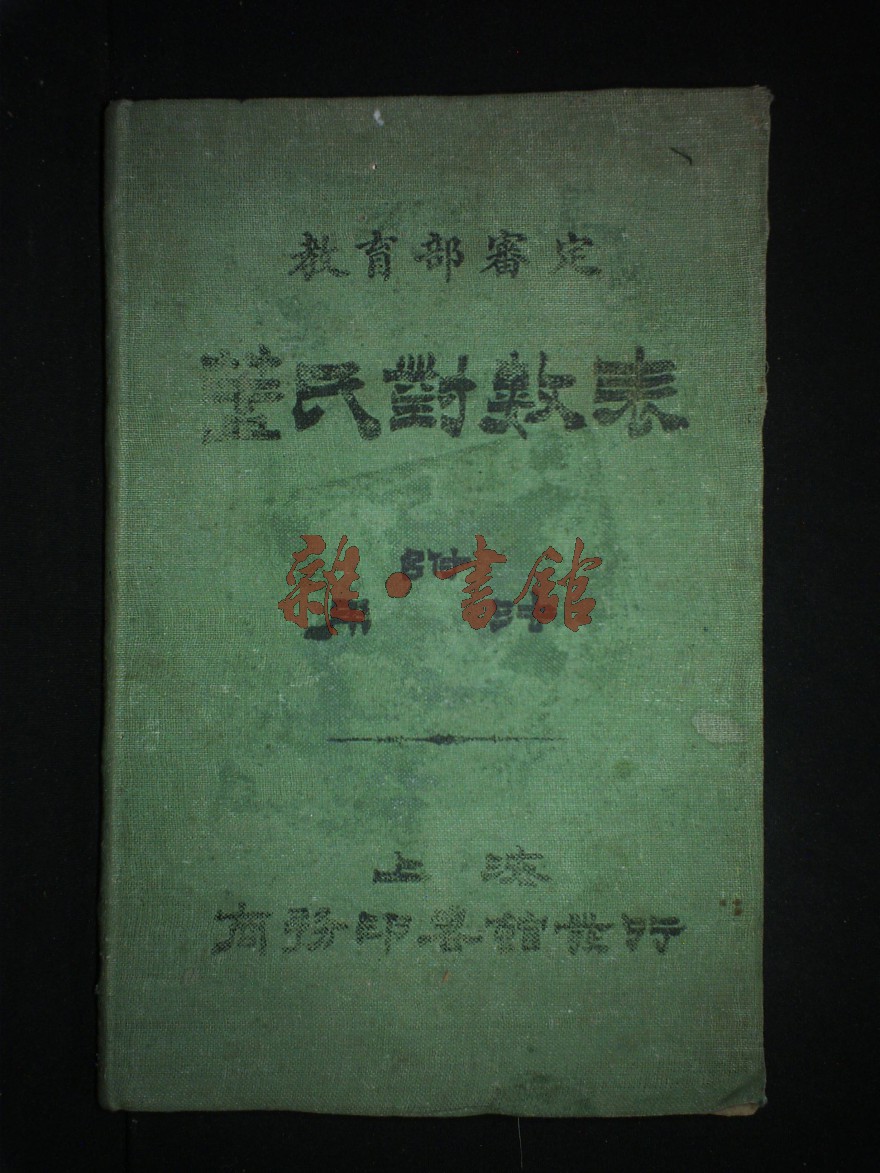 教育部審定
蓋氏對數表
附
用法
雜·書館
上海
商務印書館發行